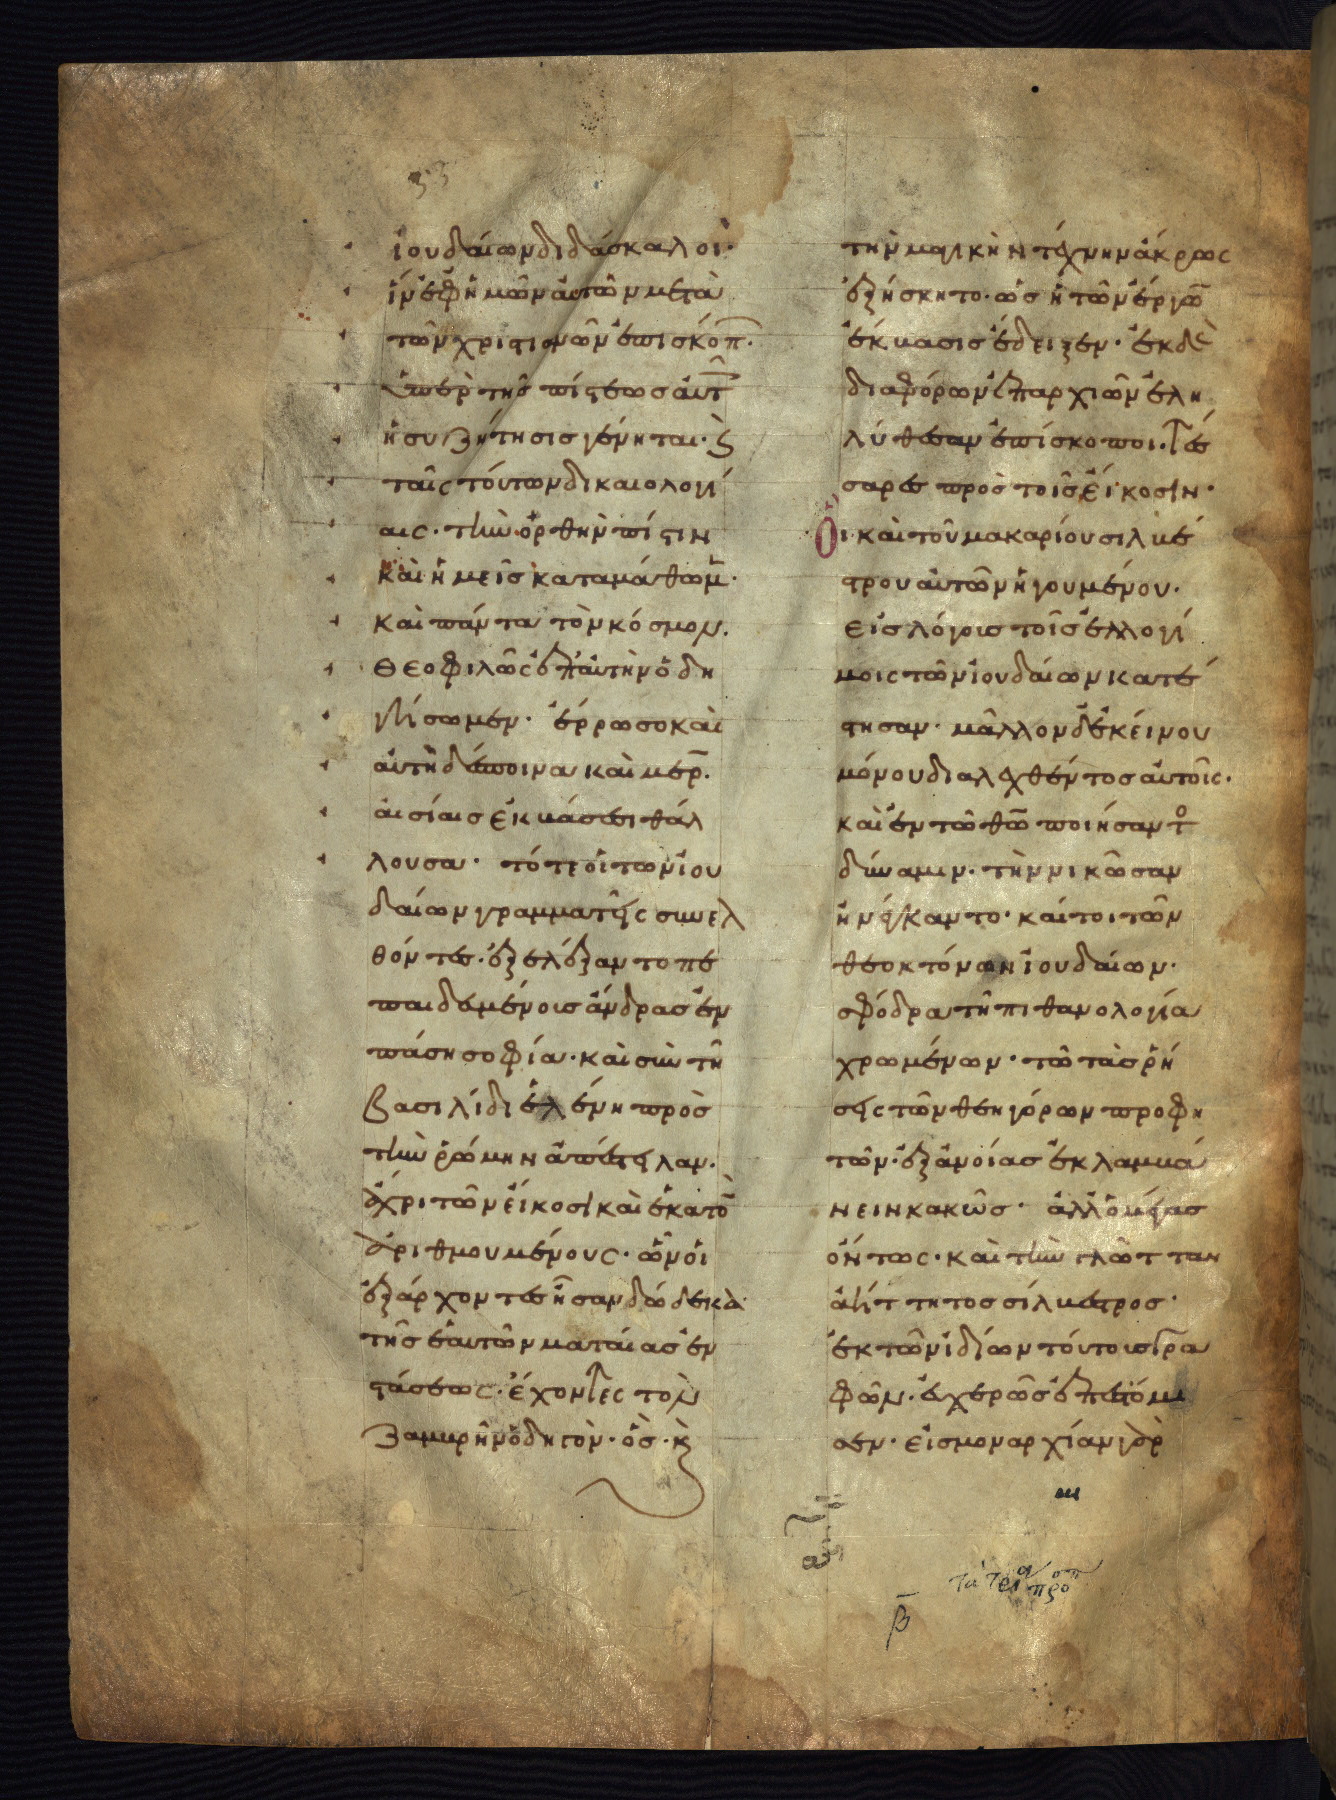 ἰουδαίων διδάσκαλοι·
ἵν' ἐφ' ἡμῶν αὐτῶν μετὰ
τῶν χριστιανῶν ἐπισκόπ·
ὑπὲρ τῆς πίστεως αὐτ
ἡ συζήτησις γένηται· ϗ
ταῖς τούτων δικαιολογί
αις· τὴν ὀρθὴν πίστιν
καὶ ἡμεῖς καταμάθωμ·
καὶ πάντα τὸν κόσμον·
θεοφιλῶς ἐπ' αὐτὴν ὁδη
γήσωμεν· ἔρρωσο καὶ
αὐτὴ δέσποινα καὶ μερ·
αἰσίαις ἐκβάσεσι θάλ
λουσα· τότε οἱ τῶν ἰου
δαίων γραμματεῖς συνελ
θόντες· ἐξελέξαντο πε
παιδευμένους ἄνδρας ἐν
πάσῃ σοφία· καὶ σὺν τῆ
βασιλίδι ἑλένη πρὸς
τὴν ῥώμην ἀπέστειλαν·
ἄχρι τῶν εἴκοσι καὶ ἑκατὸ
ἀριθμουμένους· ὧν οἱ
ἐξάρχοντες ἦσαν δώδεκα
τῆς ἑαυτῶν ματαίας ἐν
στάσεως· ἔχοντες τὸν
ζαμβρὴν ὁδηγὸν· ὃς· ϗ
τὴν μαγικὴν τέχνην ἄκρως
ἐξήσκητο· ὡς ἡ τῶν ἔργω
ἔκβασις ἔδειξεν· ἐκ δὲ
διαφόρων ἐπαρχιῶν ἐλη
λύθεσαν ἐπίσκοποι· τέσ
σαρες πρὸς τοῖς εἴκοσιν·
Οἳ καὶ τοῦ μακαρίου σιλβέ
στρου αὐτῶν ἡγουμένου·
εἰς λόγους τοῖς ἐλλογί
μοις τῶν ἰουδαίων κατέ
στησαν· μᾶλλον δ' ἐκείνου
μόνου διαλεχθέντος αὐτοῖς·
καὶ ἐν τῶ θω ποιήσαντο
δύναμιν· τὴν νικῶσαν
ἠνέγκαντο· καίτοι τῶν
θεοκτόνων ἰουδαίων·
σφόδρα τῆ πιθανολογία
χρωμένων· τῶ τὰς ῥή
σεις τῶν θεηγόρων προφη
τῶν· ἐξ ἀνοίας ἐκλαμβά
νειν κακῶς· ἀλλ' ὁ μέγας
ὄντως· καὶ τὴν γλῶτταν
ἀήττητος σίλβεστρος·
ἐκ τῶν ἰδίων τούτους γρα
φῶν· εὐχερῶς ἐπεστόμι
σεν· εἰς μοναρχίαν γὰρ
β